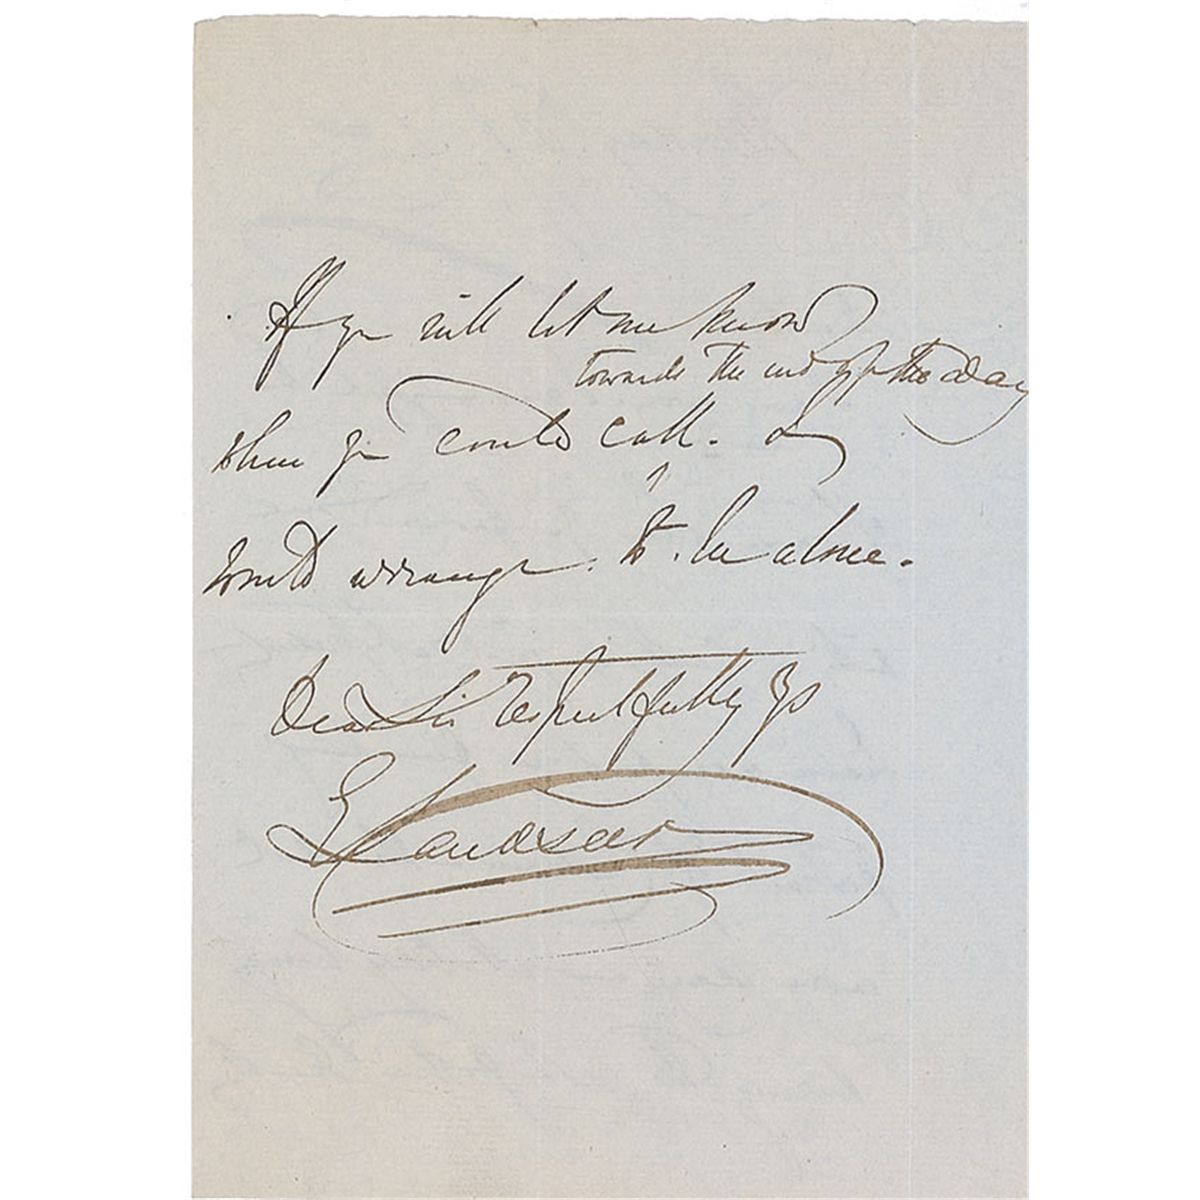 If you will let me know
towards the end of the day
when you could call. I
would arrange. to. be alone.
Dear Sir respectfully ys
E Landseer